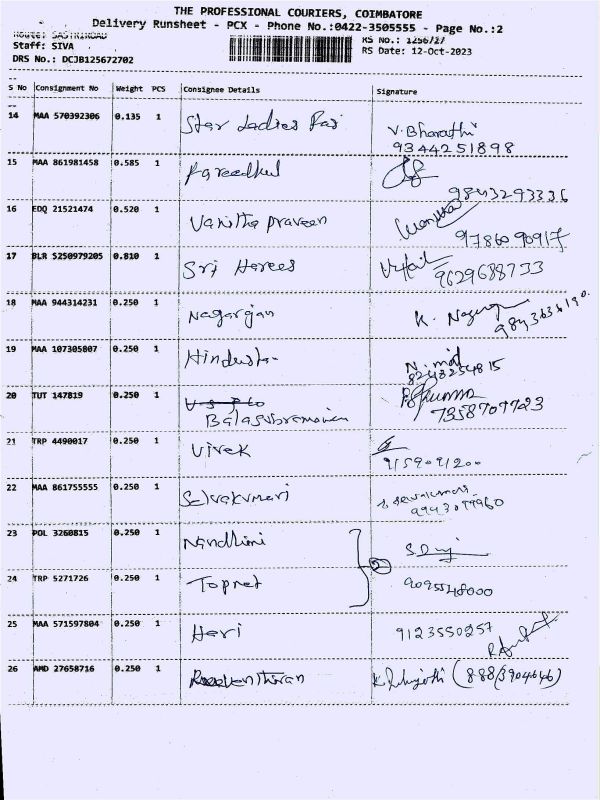 THE PROFESSIONAL COURIERS, COIMBATORE
Delivery Runsheet - PCX - Phone No.:0422-3505555 - Page No.:2
Staff: SIVA
RS No.: 1256727
RS Date: 12-Oct-2023
DRS No.: DCJB125672702
S No Consignment No Weight PCS Consignee Details Signature
14 MAA 570392306 0.135 1 Star Ladies V. Bharathi
9344251898
15 MAA 861981458 0.585 1
9843293336
16 EDQ 21521474 0.520 1 Vanitha praveen
9786090917
17 BLR 5250979205 0.810 1 Sri Harees
9629688733
18 MAA 944314231 0.250 1 Nagarajan K.
19 MAA 107305807 0.250 1 Hindustan
8248254815
20 TUT 147819 0.250 1
Balasubramanian
7358707723
21 TRP 4490017 0.250 1 Vivek
9159091200
22 MAA 861755555 0.250 1 Selvakumari S. Selvakumari
9943099960
23 POL 3260815 0.250 1 Nandhini
2
24 TRP 5271726 0.250 1 Topnet 9095548000
25 MAA 571597804 0.250 1 Hari 9123550257
26 AMD 27658716 0.250 1